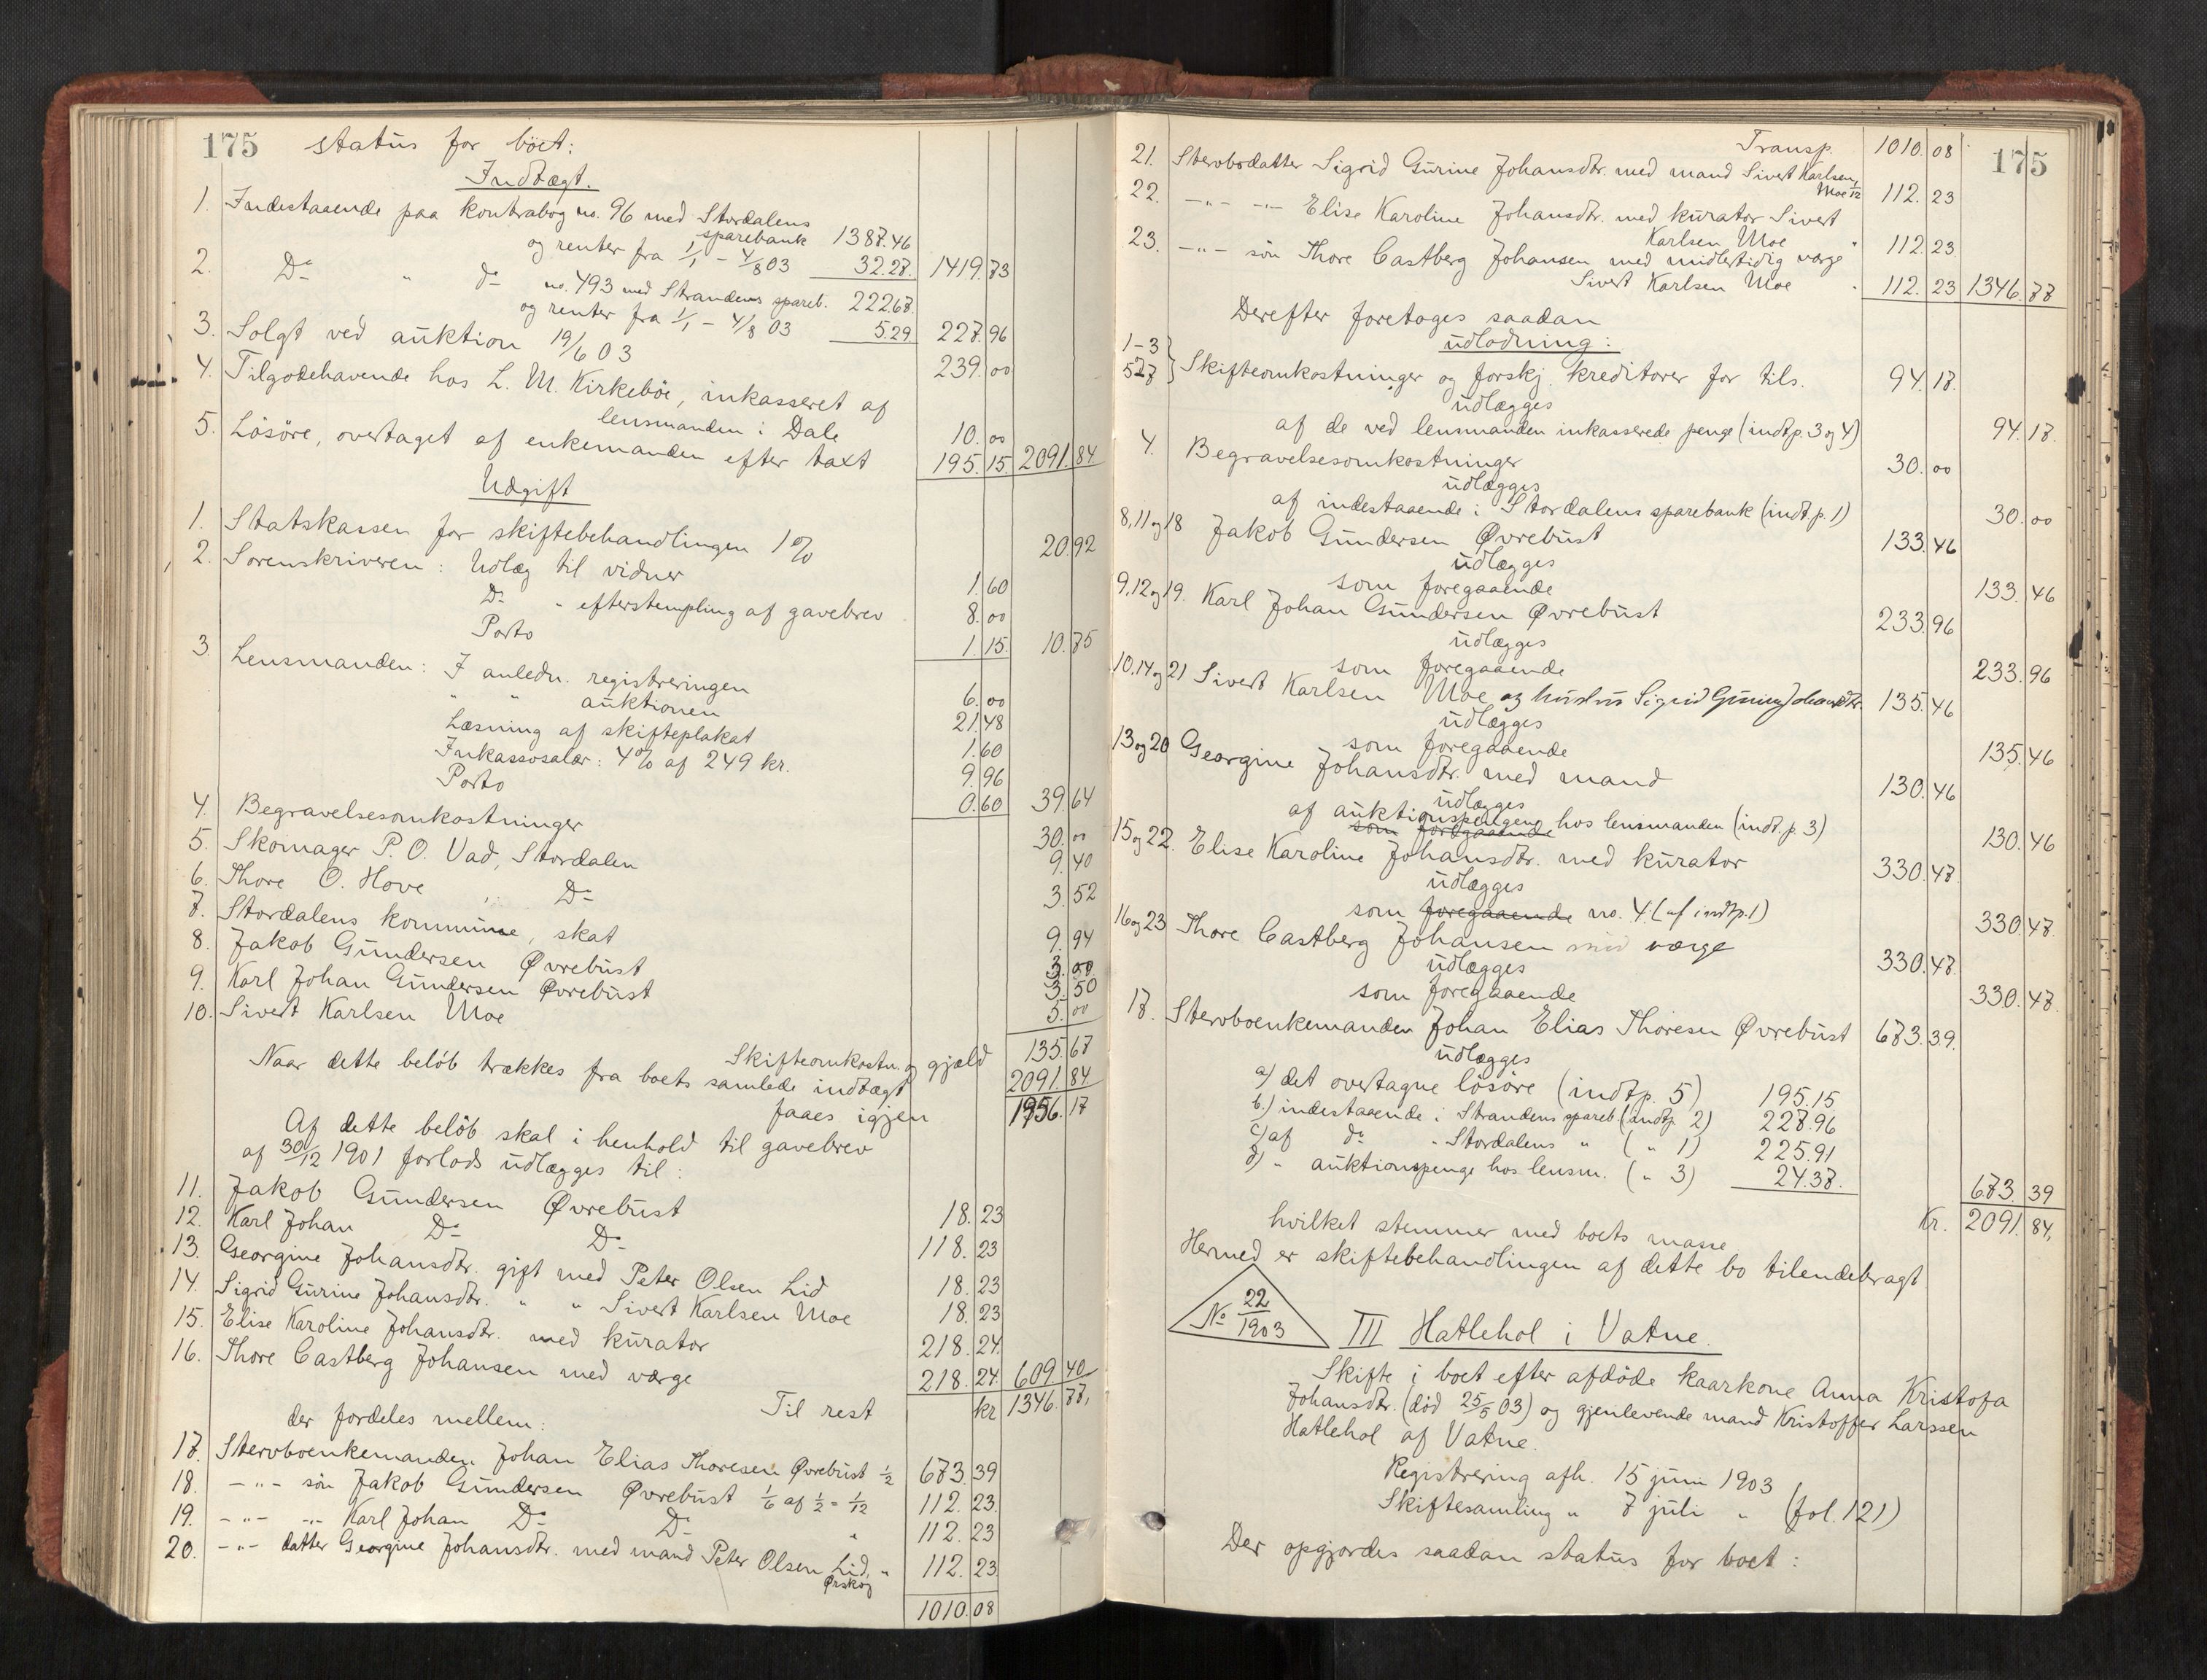 175 status for böet:
Indtægt.
1. Indestaaende paa kontrabog no. 96 med Stordalens
sparebank 1387.46
og renter fra 1/1 - 4/8 03 32.27. 1419.73
2. Do " do no. 493 med Strandens spareb. 222.67.
og renter fra 1/1 - 4/8 03 5.29 227.96
3. Solgt ved auktion 19/6 03 239.00
4. Tilgodehavende hos L. M. Kirkeböe, inkasseret af
lensmanden i Dale 10.00
5. Lösöre, overtaget af enkemanden efter taxt 195.15 2091.84
Udgift
1. Statskassen for skiftebehandlingen 1% 20.92
2. Sorenskriveren: Udlæg til vidner 1.60
Do " efterstempling af gavebrev 8.00
Porto 1.15. 10.75
3. Lensmanden: I anledn. registreringen 6.00
" " auktionen 21.48
Læsning af skifteplakat 1.60
Inkassosalær: 4% af 249 kr. 9.96
Porto 0.60 39.64
4. Begravelsesomkostninger 30.00
5. Skomager P. O. Vad, Stordalen 9.40
6. Thore O. Hove Do 3.52
7. Stordalens kommune, skat 9.94
8. Jakob Gundersen Øvrebust 3.00
9. Karl Johan Gundersen Øvrebust 3.50
10. Sivert Karlsen Moe 5.00
Skifteomkostn. og gjæld 135.67
Naar dette belöb trækkes fra boets samlede indtægt 2091.84
faaes igjen 1956.17
Af dette belöb skal i henhold til gavebrev
af 30/12 1901 forlods udlægges til:
11. Jakob Gundersen Øvrebust 18.23
12. Karl Johan Do Do 118.23
13. Georgine Johansdtr. gift med Peter Olsen Lid 18.23
14. Sigrid Gurine Johansdtr. " " Sivert Karlsen Moe 18.23
15. Elise Karoline Johansdtr. med kurator 218.24.
16. Thore Castberg Johansen med værge 218.24. 609.40
Til rest kr 1346.77,
der fordeles mellem:
17. Stervboenkemanden Johan Elias Thoresen Øvrebust 1/2 673.39
18. -"- sön Jakob Gundersen Øvrebust 1/6 af 1/2 = 1/12 112.23.
19. -"- -"- Karl Johan Do Do " 112.23
20. -"- datter Georgine Johansdtr. med mand Peter Olsen Lid, " 112.23
Ørskog
1010.08
Transp. 1010.08 175
21. Stervbodatter Sigrid Gurine Johansdtr. med mand Sivert Karlsen
Moe 1/12 112.23
22. -"- -"- Elise Karoline Johansdtr. med kurator Sivert
Karlsen Moe " 112.23
23. -"- sön Thore Castberg Johansen med midlertidig værge
Sivert Karlsen Moe " 112.23 1346.77
Derefter foretages saadan
udlodning:
1-3
5-7 } Skifteomkostninger og forskj. kreditorer for tils. 94.17.
udlægges
af de ved lensmanden inkasserede penge (indtp. 3 og 4) 94.17.
4. Begravelsesomkostninger 30.00
udlægges
af indestaaende i Stordalens sparebank (indt. p. 1) 30.00
8, 11 og 18 Jakob Gundersen Øvrebust 133.46
udlægges
som foregaaende 133.46
9, 12 og 19. Karl Johan Gundersen Øvrebust 233.96
udlægges
som foregaaende 233.96
10, 14 og 21 Sivert Karlsen Moe og hustru Sigrid Gurine Johansdtr. 135.46
udlægges
som foregaaende 135.46
13 og 20 Georgine Johansdtr. med mand 130.46
udlægges
af auktionspengene hos lensmanden (indt. p. 3)
som foregaaende 130.46
15 og 22. Elise Karoline Johansdtr. med kurator 330.47.
udlægges
som foregaaende no. 4. (af indtp. 1) 330.47.
16 og 23 Thore Castberg Johansen med værge 330.47.
udlægges
som foregaaende 330.47.
17. Stervboenkemanden Johan Elias Thoresen Øvrebust 673.39.
udlægges
a) det overtagne lösöre (indtp. 5) 195.15
b.) indestaaende i Strandens spareb. (indtp. 2) 227.96
c) af do " Stordalens " ( " 1) 225.91
d) " auktionspenge hos lensm. ( " 3) 24.37. 673.39
Kr. 2091.84,
hvilket stemmer med boets masse
Hermed er skiftebehandlingen af dette bo tilendebragt
No 22/1903 III Hatlehol i Vatne.
Skifte i boet efter afdöde kaarkone Anna Kristofa
Johansdtr. (död 25/5 03) og gjenlevende mand Kristoffer Larssen
Hatlehol af Vatne.
Registrering afh. 15 juni 1903
Skiftesamling " 7 juli " (fol. 121)
Der opgjordes saadan status for boet: